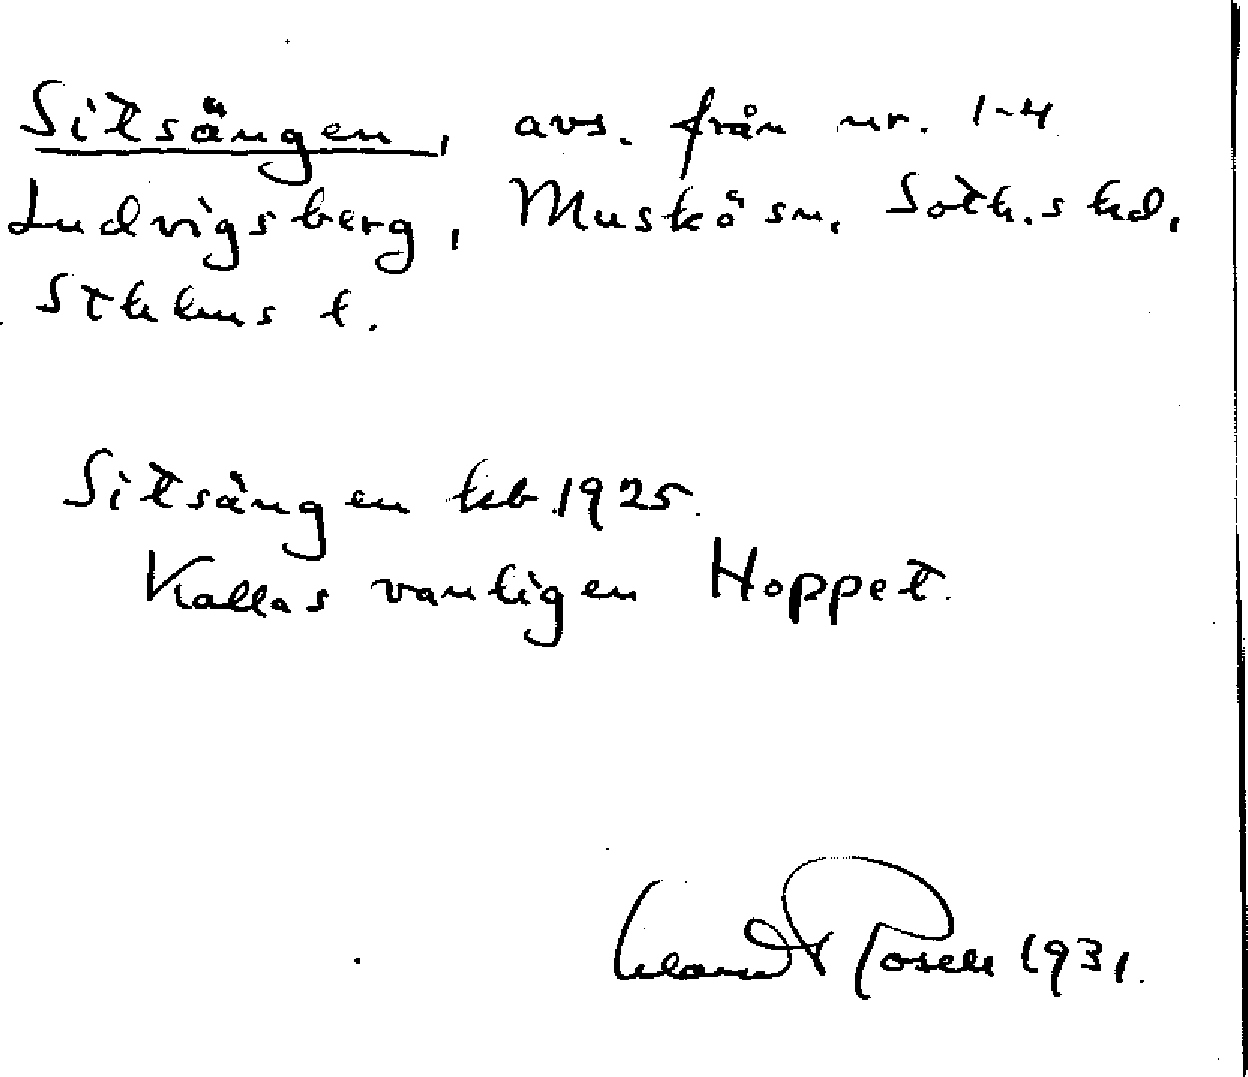 Sitsängen, avs. från nr. 1-4
Ludvigsberg, Muskö sn, Soth.s hd,
Sthlms l.
Sitsängen kb 1925.
Kallas vanligen Hoppet.
Rosell 1931.